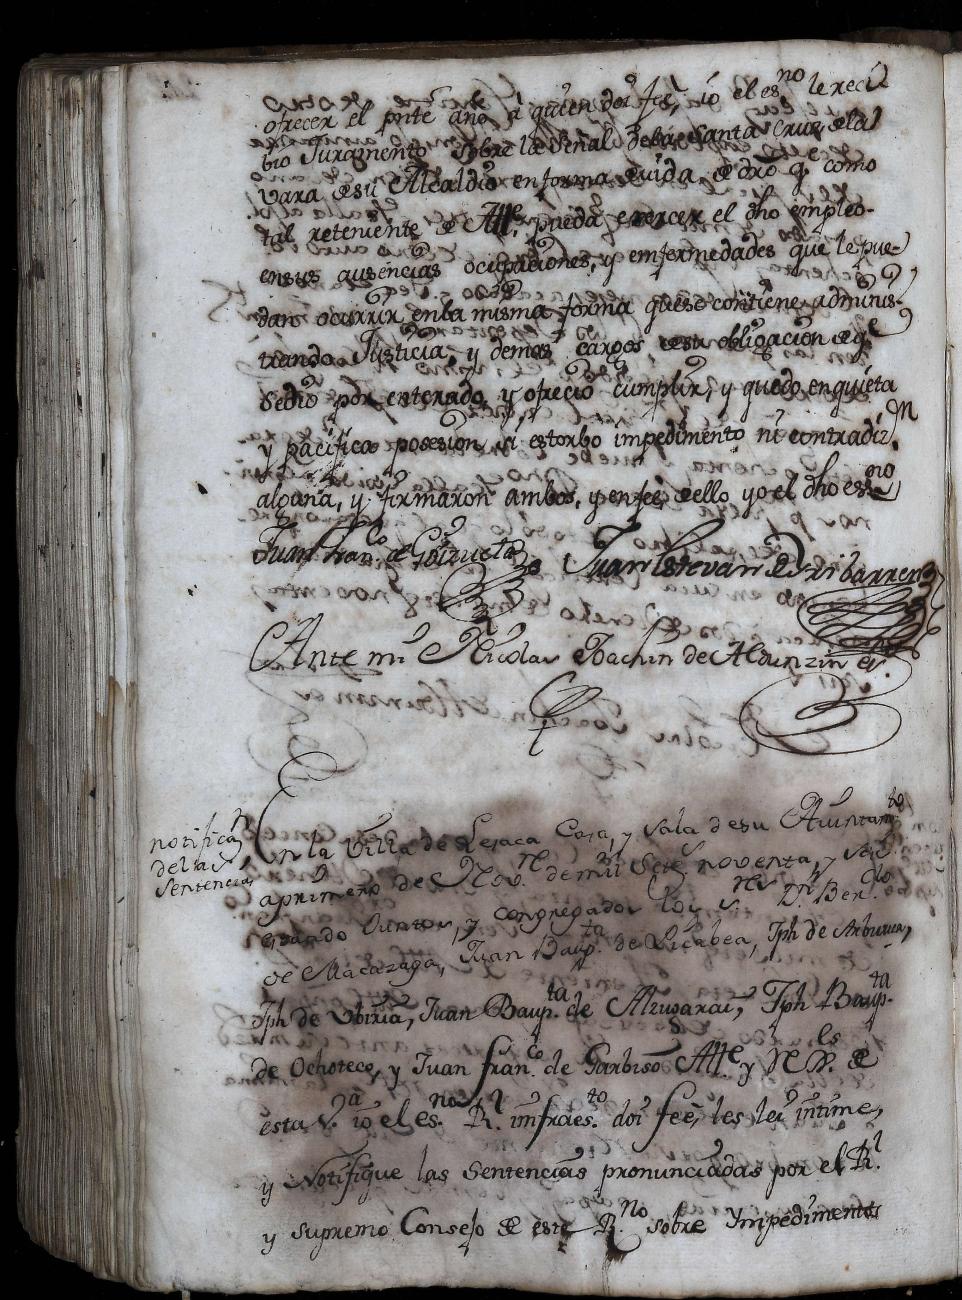 ofrecer el pnte año a quien doi fee, io el esno le reci
bio Juramento sobre la señal dela Santa Cruz, ela
vara de su Alcaldia en forma devida de dro qe como
tal reteniente de Alle. pueda exercer el dho empleo
en sus ausencias ocupaciones, y emfermedades que le pue
dan ocurrir en la misma forma que se contiene adminis
trando Justicia, y demas cargos de su obligacion de qe
sedio por enterado, y ofrecio cumplir, y quedo en quieta
y pacifica posesion si estorbo impedimento ni contradizn
alguna, y firmaron ambos, y en fee de ello yo el dho esno
Juan Franco. de Goizueta Juan Estevan de Irribarren
Ante mi Nicolas Joachin de Aldunzin es.
notificazn
delas
Sentencias
En la Villa de Lesaca Casa, y Sala de su Aiuntamto
a primero de Nove. de mil setes noventa, y seis
estando Juntos, y congregados los Srs Dn. Berndo
de Macazaga, Juan Baupta. de Picabea, Jph de Arburua,
Jph de Ubiria, Juan Baupta. de Alzugarai, Jph Baupta.
de Ochoteco, y Juan Franco. de Garbiso Alle. y Rls. de
esta Va. io el esno. Rl. infraesto. doi fee, les lei intime,
y Notifique las Sentencias pronunciadas por el Rl.
y supremo Consejo de este Rno. sobre Ympedimento